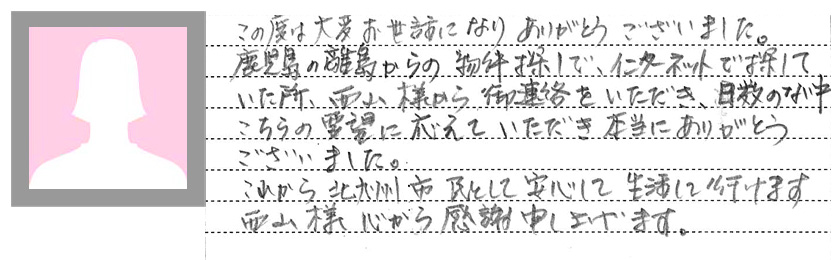 この度は大変お世話になりありがとうございました。
鹿児島の離島からの物件探しで、インターネットで探して
いた所、西山様から御連絡をいただき、日数のない中
こちらの要望に応えていただき本当にありがとう
ございました。
これから北九州市民として安心して生活して行けます
西山様心から感謝申し上げます。